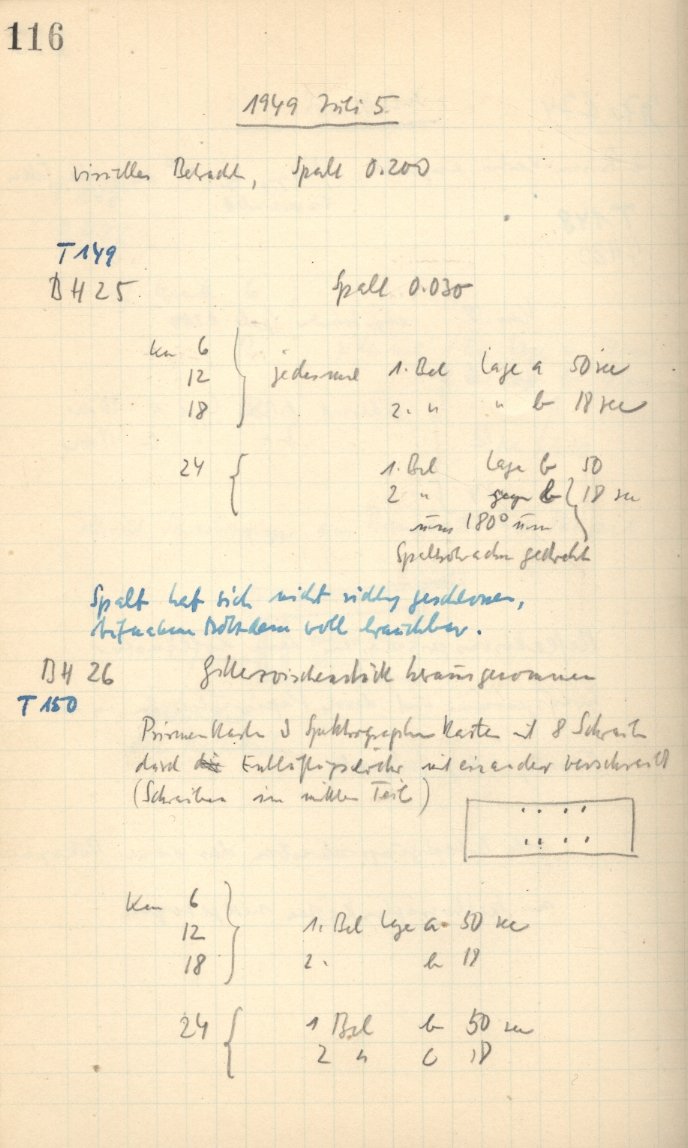 116
1949 Juli 5.
visuelles Betracht, Spalt 0.200
T 149
BH 25 Spalt 0.030
Km 6
12 jedesmal 1. Bel Lage a 50 sec
18 2. " " b 18 sec
24 1. Bel Lage b 50
2 " gegen b 18 sec
um 180° um
gedreht
Spalt hat sich nicht richtig geschlossen,
Aufnahmen trotzdem voll brauchbar.
BH 26 Gitterzwischenstück herausgenommen
T 150
Prismenkasten & Spektrographen Kasten mit 8 Schrauben
durch Entlüftungslöcher miteinander verschraubt
(Scheiben im mittl Teil)
Km 6
12 1. Bel Lage a 50 sec
18 2. b 18
24 1 Bel b 50 sec
2 " c 18